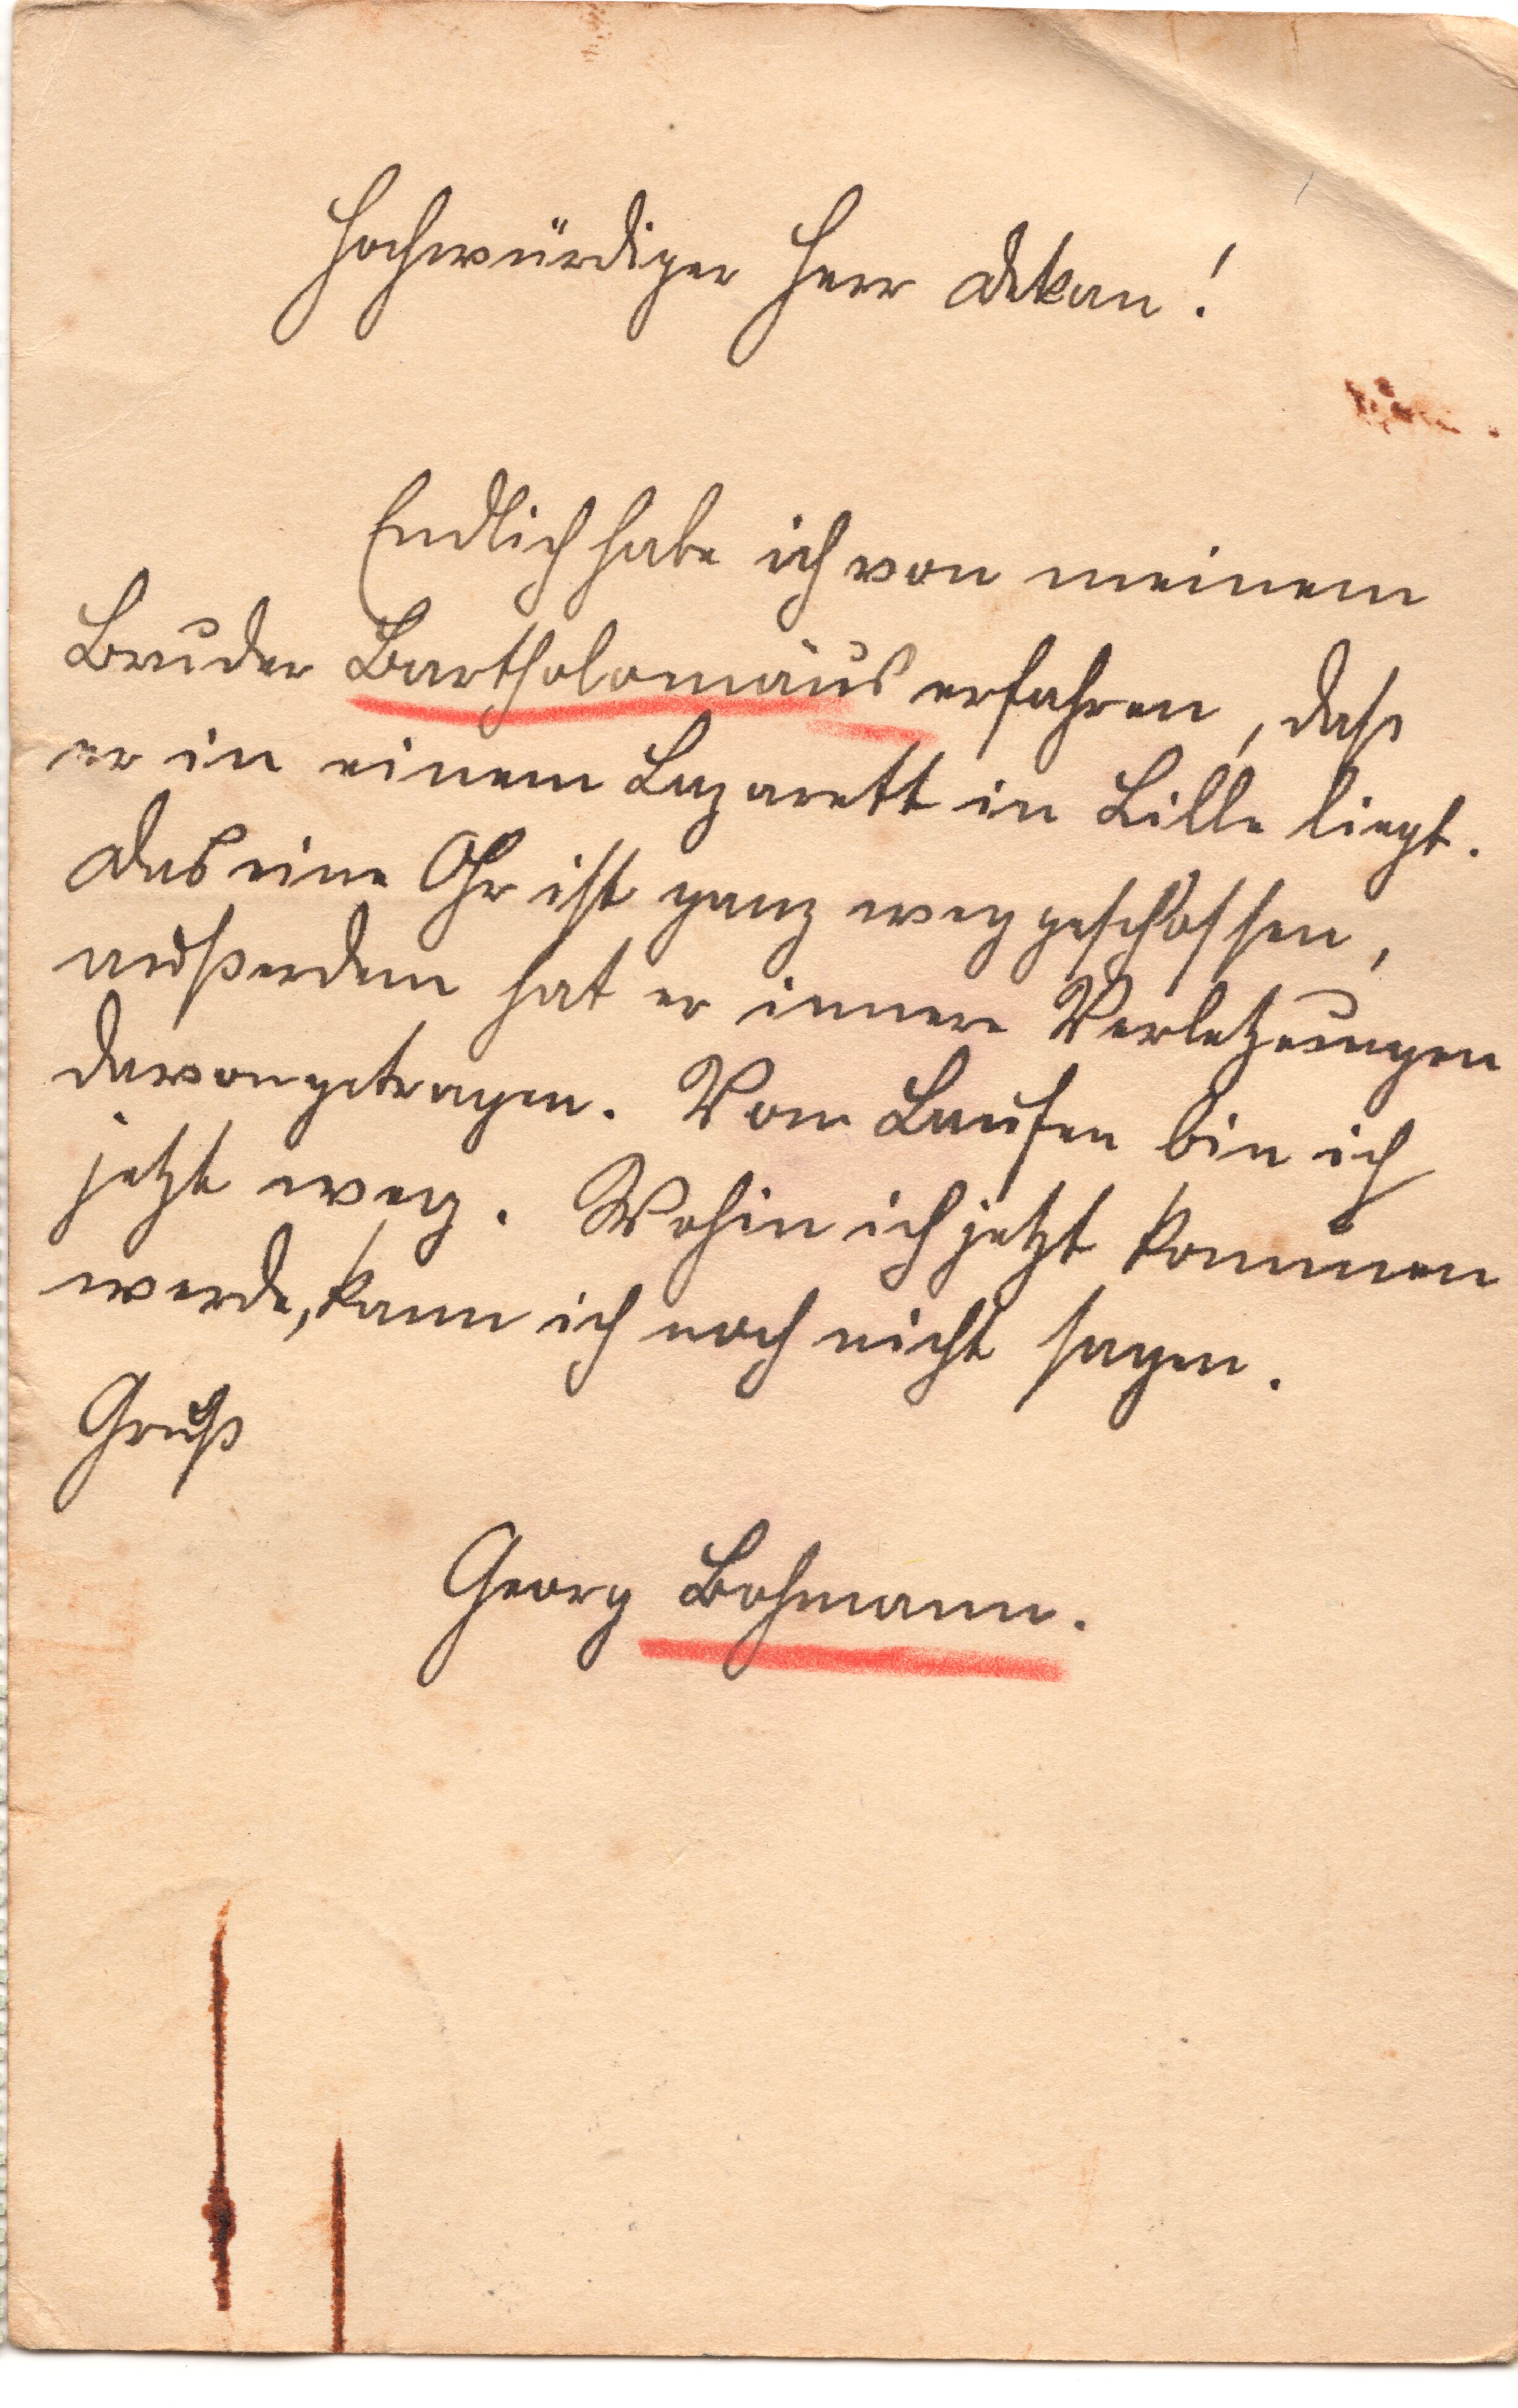 Hochwürdiger Herr Dekan!
Endlich habe ich von meinem
Bruder Bartholomäus erfahren, daß
er in einem Lazarett in Lille liegt.
Das eine Ohr ist ganz weggeschossen,
außerdem hat er innere Verletzungen
davongetragen. Vom Laufen bin ich
jetzt weg. Wohin ich jetzt kommen
werde, kann ich noch nicht sagen.
Gruß
Georg Bohmann.